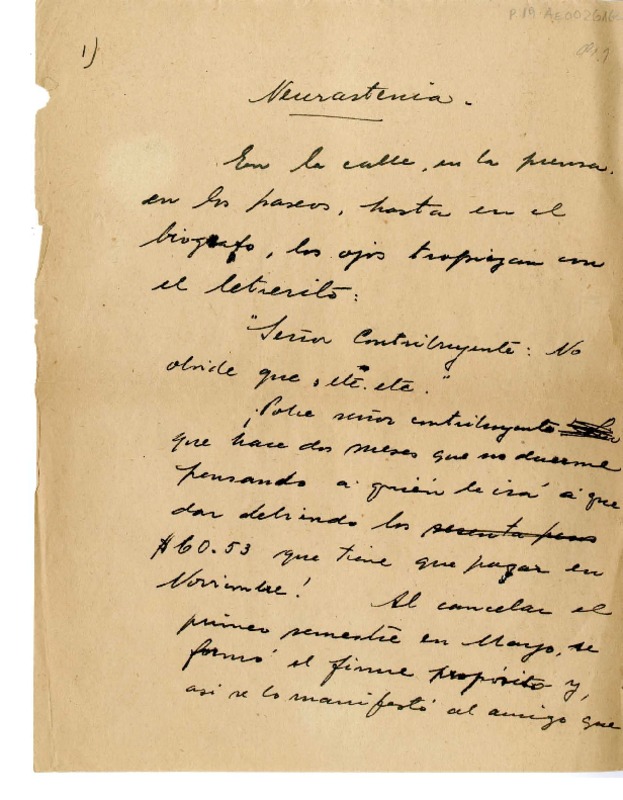 1)
Neurastenia.
En la calle, en la prensa.
en los paseos, hasta en el
biografo, los ojos tropiezan con
el letrerito:
"Señor Contribuyente: No
olvide que, etc. etc."
¡Pobre señor contribuyente
que hace dos meses que no duerme
pensando a quién le irá a que
dar debiendo los sesenta pesos
$60.53 que tiene que pagar en
Noviembre! Al cancelar el
primer semestre en Mayo, se
formó el firme propósito y,
asi se lo manifestó al amigo que